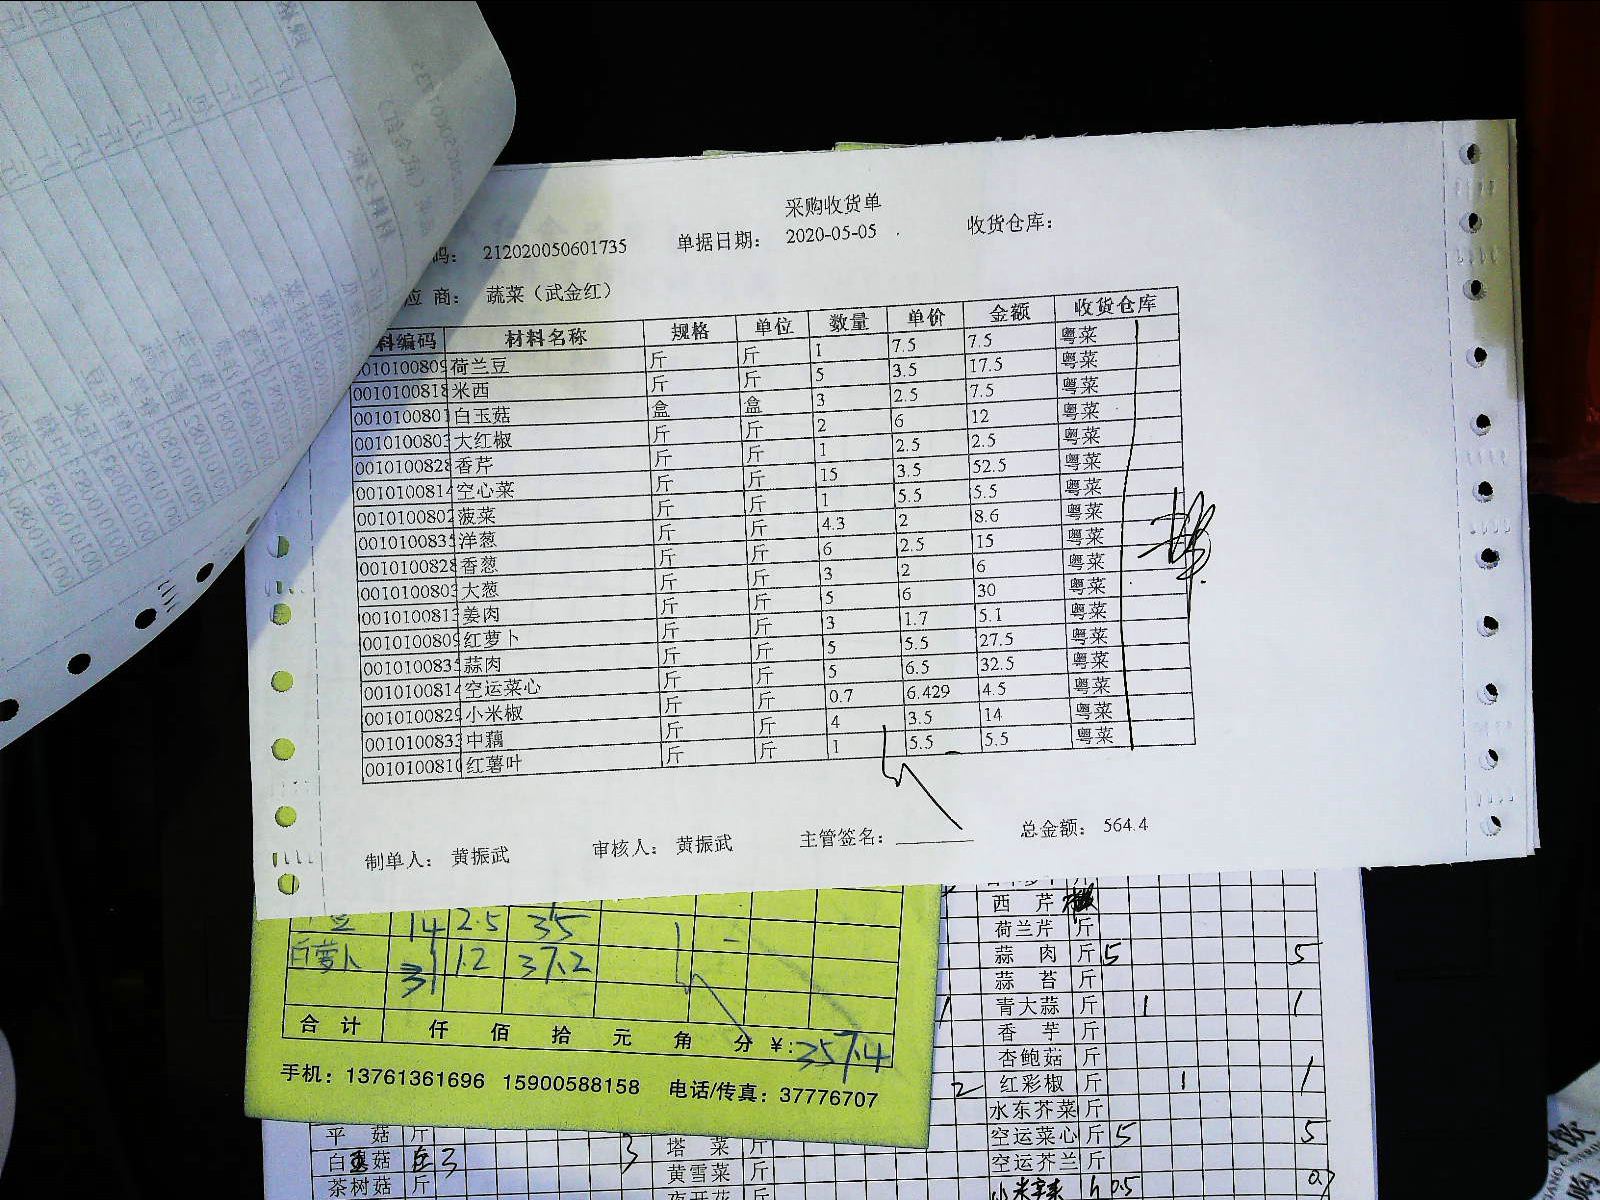 采购收货单
码： 212020050601735 单据日期： 2020-05-05 收货仓库：
应 商： 蔬菜（武金红）
料编码 材料名称 规格 单位 数量 单价 金额 收货仓库
0010100809 荷兰豆 斤 斤 1 7.5 7.5 粤菜
0010100818 米西 斤 斤 5 3.5 17.5 粤菜
0010100801 白玉菇 盒 盒 3 2.5 7.5 粤菜
0010100803 大红椒 斤 斤 2 6 12 粤菜
0010100828 香芹 斤 斤 1 2.5 2.5 粤菜
0010100814 空心菜 斤 斤 15 3.5 52.5 粤菜
0010100802 菠菜 斤 斤 1 5.5 5.5 粤菜
0010100835 洋葱 斤 斤 4.3 2 8.6 粤菜
0010100828 香葱 斤 斤 6 2.5 15 粤菜
0010100803 大葱 斤 斤 3 2 6 粤菜
0010100813 姜肉 斤 斤 5 6 30 粤菜
0010100809 红萝卜 斤 斤 3 1.7 5.1 粤菜
0010100835 蒜肉 斤 斤 5 5.5 27.5 粤菜
0010100814 空运菜心 斤 斤 5 6.5 32.5 粤菜
0010100829 小米椒 斤 斤 0.7 6.429 4.5 粤菜
0010100833 中藕 斤 斤 4 3.5 14 粤菜
0010100810 红薯叶 斤 斤 1 5.5 5.5 粤菜
制单人： 黄振武 审核人： 黄振武 主管签名： 总金额： 564.4
豆 14 2.5 35
白萝卜 31 1.2 37.2
合 计 仟 佰 拾 元 角 分 ￥:357.4
手机：13761361696 15900588158 电话/传真：37776707
西 芹
荷兰芹 斤
蒜 肉 斤 5 5
蒜 苔 斤
青大蒜 斤 1 1
香 芋 斤
杏鲍菇 斤
2 红彩椒 斤 1 1
水东芥菜 斤
平 菇 斤 3 塔 菜 斤 空运菜心 斤 5 5
白玉菇 3 黄雪菜 斤 空运芥兰 斤
茶树菇 斤 夜开花 斤 小米辣 0.5 0.7